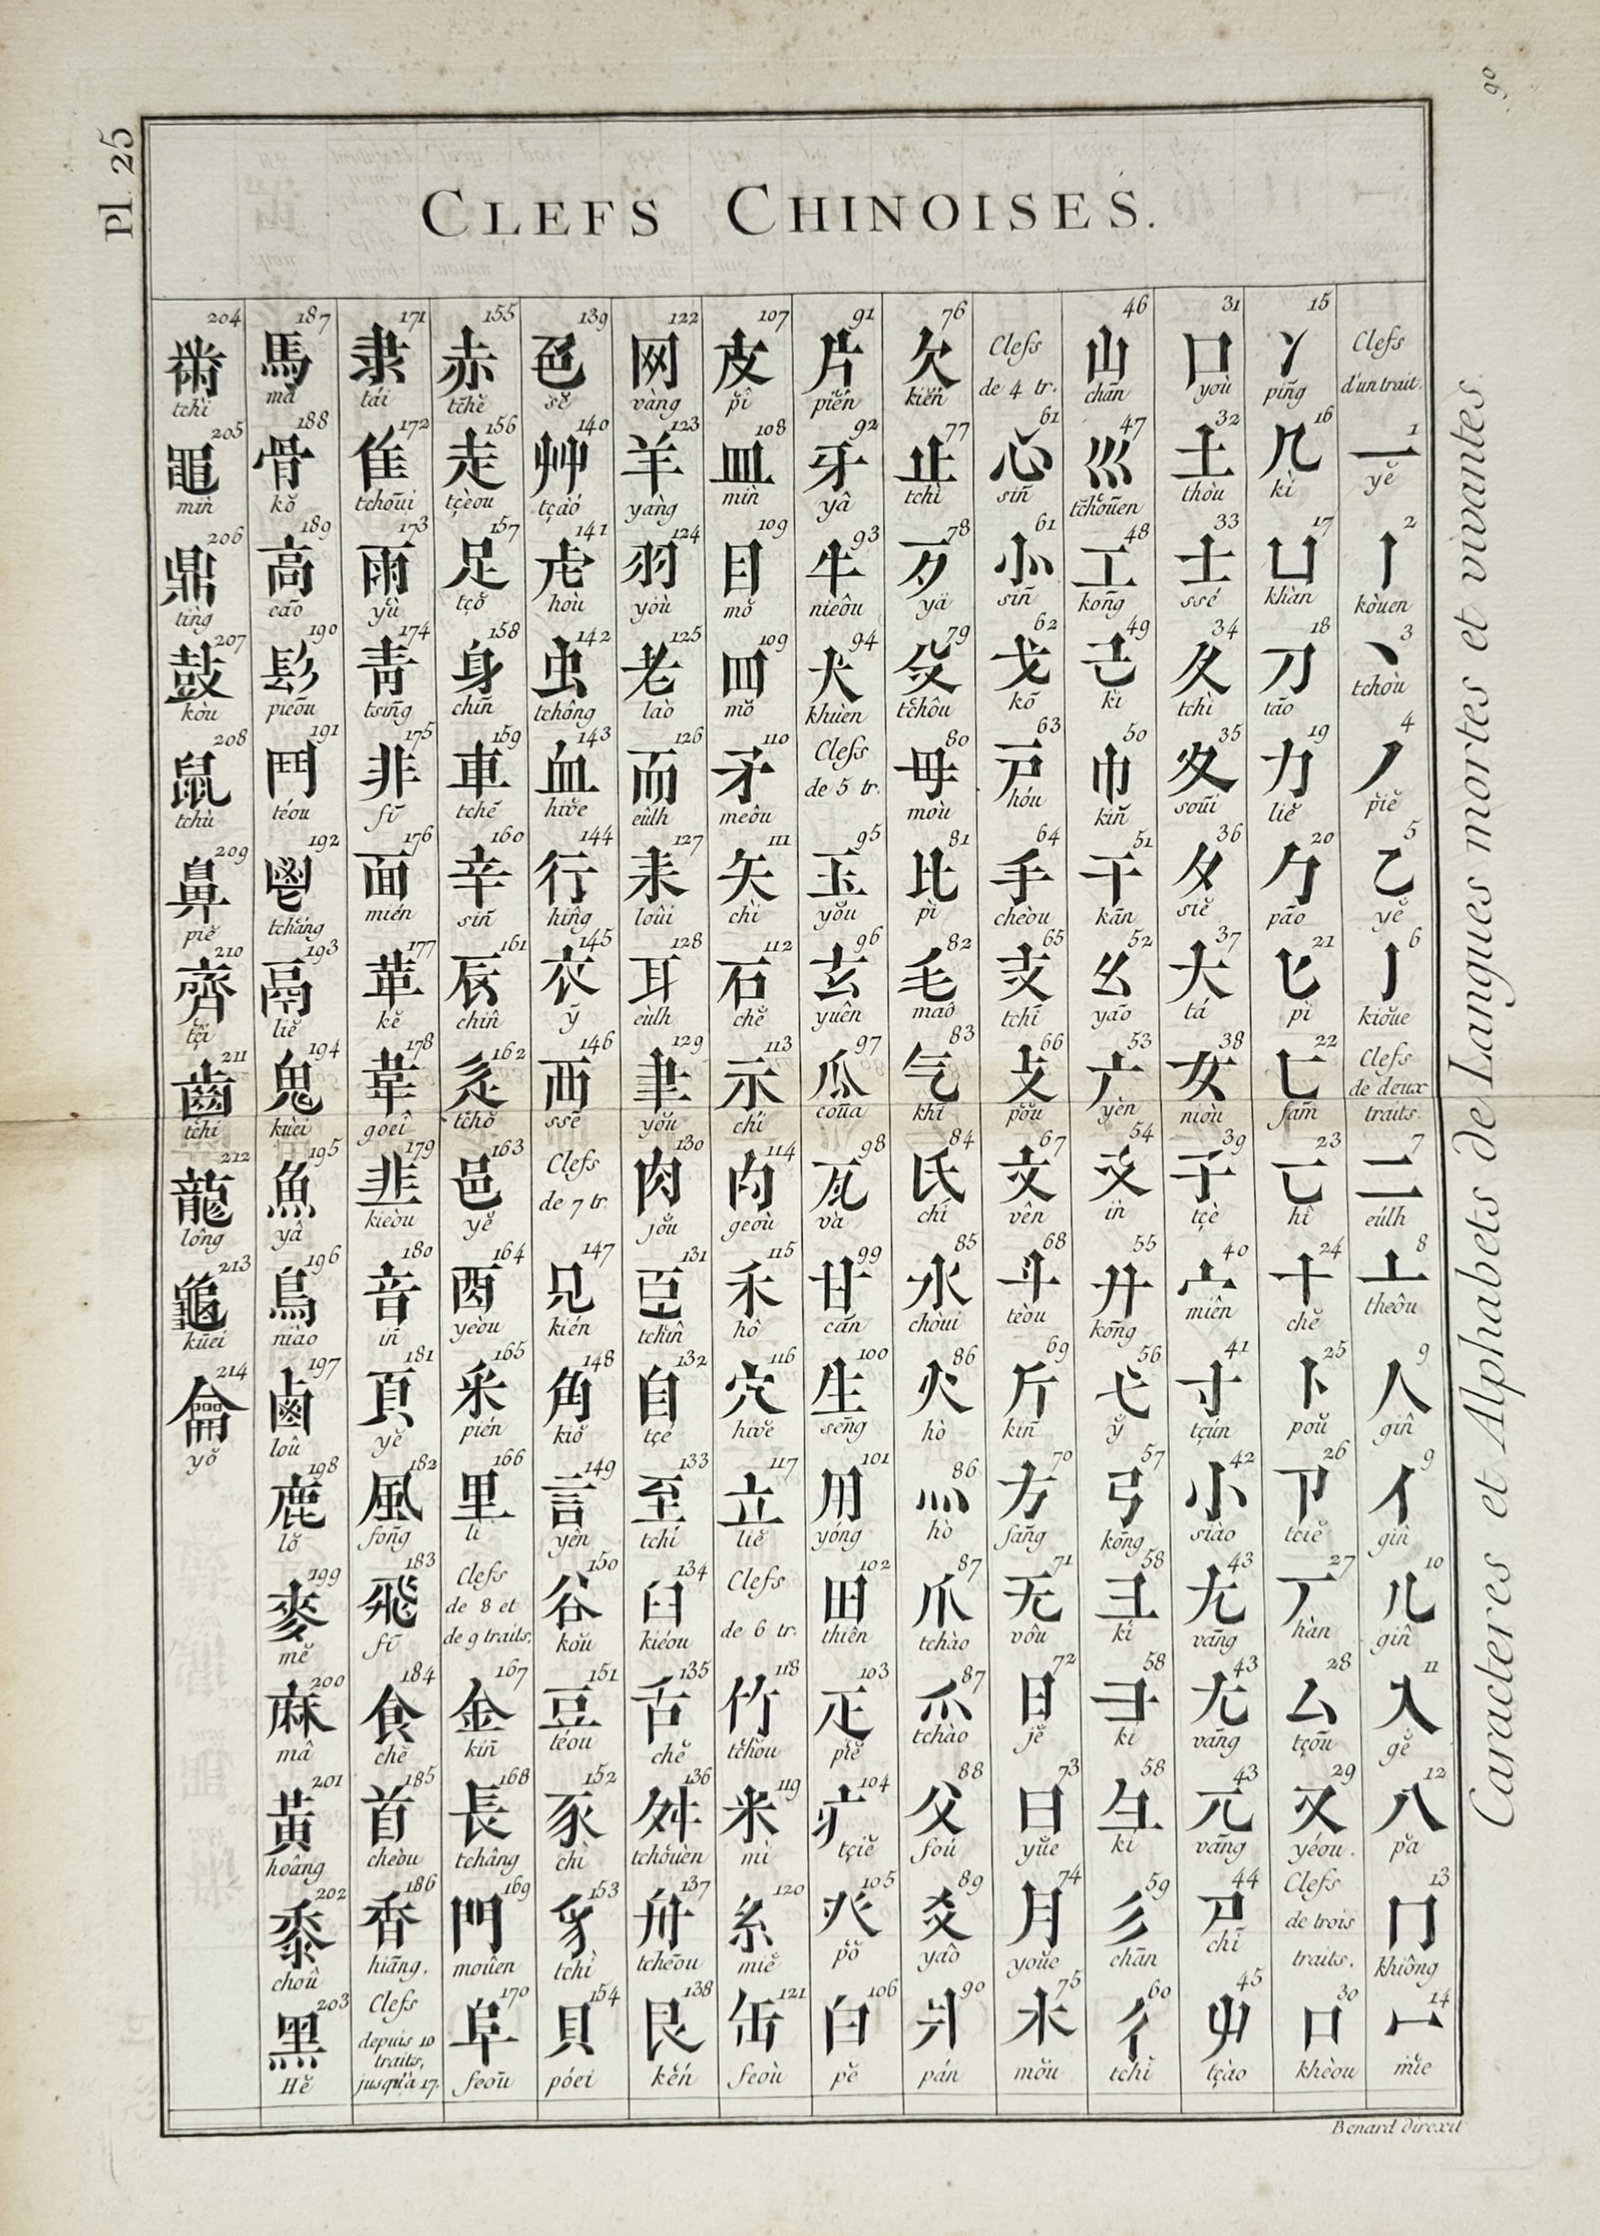 Pl. 25
90
CLEFS CHINOISES.
Clefs
d'un trait.
1 一 yĕ
2 丨 kòuen
3 丶 tchòu
4 丿 piĕ
5 乙 yĕ
6 亅 kioŭe
Clefs
de deux
traits.
7 二 eúlh
8 亠 theôu
9 人 gin̂
9 亻 gin̂
10 儿 gin̂
11 入 gĕ
12 八 pă
13 冂 khiông
14 冖 mĭe
15 冫 pin̄g
16 几 kì
17 凵 khàn
18 刀 tāo
19 力 liĕ
20 勹 pāo
21 匕 pì
22 匚 fam̄
23 匸 hî
24 十 chĕ
25 卜 poŭ
26 卩 tciĕ
27 厂 hàn
28 厶 tçōu
29 又 yéou.
Clefs
de trois
traits.
30 口 khèou
31 囗 yoù
32 土 thòu
33 士 ssé
34 夂 tchì
35 夊 soūi
36 夕 siĕ
37 大 tá
38 女 nioù
39 子 tçè
40 宀 miên
41 寸 tçún
42 小 siào
43 尢 vāng
43 尤 vāng
43 兀 vāng
44 尸 chī
45 屮 tçào
46 山 chān
47 巛 tchoūen
48 工 kon̄g
49 己 kì
50 巾 kin̄
51 干 kān
52 幺 yāo
53 广 yèn
54 廴 ìn
55 廾 kōng
56 弋 y̆
57 弓 kōng
58 彐 kí
58 彐 kí
58 彑 kí
59 彡 chān
60 彳 tchĭ
Clefs
de 4 tr.
61 心 sin̄
61 㣺 sin̄
62 戈 kō
63 戸 hóu
64 手 cheòu
65 支 tchī
66 攴 pŏu
67 文 vên
68 斗 teòu
69 斤 kin̄
70 方 fāng
71 无 vôu
72 日 jĕ
73 曰 yŭe
74 月 youĕ
75 木 mŏu
76 欠 kién
77 止 tchì
78 歹 yă
79 殳 tchôu
80 毋 moù
81 比 pì
82 毛 maô
83 气 khī
84 氏 chí
85 水 chòui
86 火 hò
86 灬 hò
87 爪 tchào
87 爫 tchào
88 父 foú
89 爻 yáo
90 爿 pán
91 片 pién
92 牙 yâ
93 牛 nieôu
94 犬 khuèen
Clefs
de 5 tr.
95 玉 yŏu
96 玄 yuên
97 瓜 coūa
98 瓦 và
99 甘 cān
100 生 sēng
101 用 yóng
102 田 thiên
103 疋 piĕ
104 疒 tçiĕ
105 癶 pŏ
106 白 pĕ
107 皮 pî
108 皿 mìn
109 目 mŏ
109 罒 mŏ
110 矛 meôu
111 矢 chì
112 石 chĕ
113 示 chí
114 禸 geoù
115 禾 hô
116 穴 hivĕ
117 立 liĕ
Clefs
de 6 tr.
118 竹 tchŏu
119 米 mì
120 糸 miĕ
121 缶 feoù
122 网 vàng
123 羊 yàng
124 羽 yóù
125 老 laò
126 而 eûlh
127 耒 loûi
128 耳 eùlh
129 聿 yŏu
130 肉 jŏu
131 臣 tchin̂
132 自 tçé
133 至 tchí
134 臼 kiéou
135 舌 chĕ
136 舛 tchŏuèn
137 舟 tchēou
138 艮 kén
139 色 sĕ
140 艸 tçàó
141 虍 hoù
142 虫 tchông
143 血 hiŏe
144 行 hin̂g
145 衣 ȳ
146 襾 ssē
Clefs
de 7 tr.
147 見 kién
148 角 kiŏ
149 言 yên
150 谷 koŭ
151 豆 téou
152 豕 chì
153 豸 tchì
154 貝 póei
155 赤 tchĕ
156 走 tçèou
157 足 tçŏ
158 身 chin̄
159 車 tchē
160 辛 sin̄
161 辰 chin̂
162 辵 tchŏ
163 邑 yĕ
164 酉 yeòu
165 釆 pién
166 里 lì
Clefs
de 8 et
de 9 traits.
167 金 kin̄
168 長 tchâng
169 門 moûen
170 阜 feoū
171 隶 tái
172 隹 tchoūi
173 雨 yŭ
174 靑 tsin̄g
175 非 fī
176 面 mién
177 革 kĕ
178 韋 goeî
179 韭 kieòu
180 音 in̄
181 頁 yĕ
182 風 fon̄g
183 飛 fī
184 食 chĕ
185 首 cheòu
186 香 hiāng.
Clefs
depuis 10
traits,
jusqu'à 17.
187 馬 mà
188 骨 kŏ
189 高 cāo
190 髟 piēou
191 鬥 téou
192 鬯 tcháng
193 鬲 liĕ
194 鬼 kùei
195 魚 yâ
196 鳥 niào
197 鹵 loû
198 鹿 lŏ
199 麥 mĕ
200 麻 mâ
201 黃 hoâng
202 黍 choù
203 黑 Hĕ
204 黹 tchì
205 黽 mìn
206 鼎 tìng
207 鼓 kòu
208 鼠 tchù
209 鼻 piĕ
210 齊 tçî
211 齒 tchì
212 龍 lông
213 龜 kūei
214 龠 yŏ
Benard direxit
Caracteres et Alphabets de Langues mortes et vivantes.